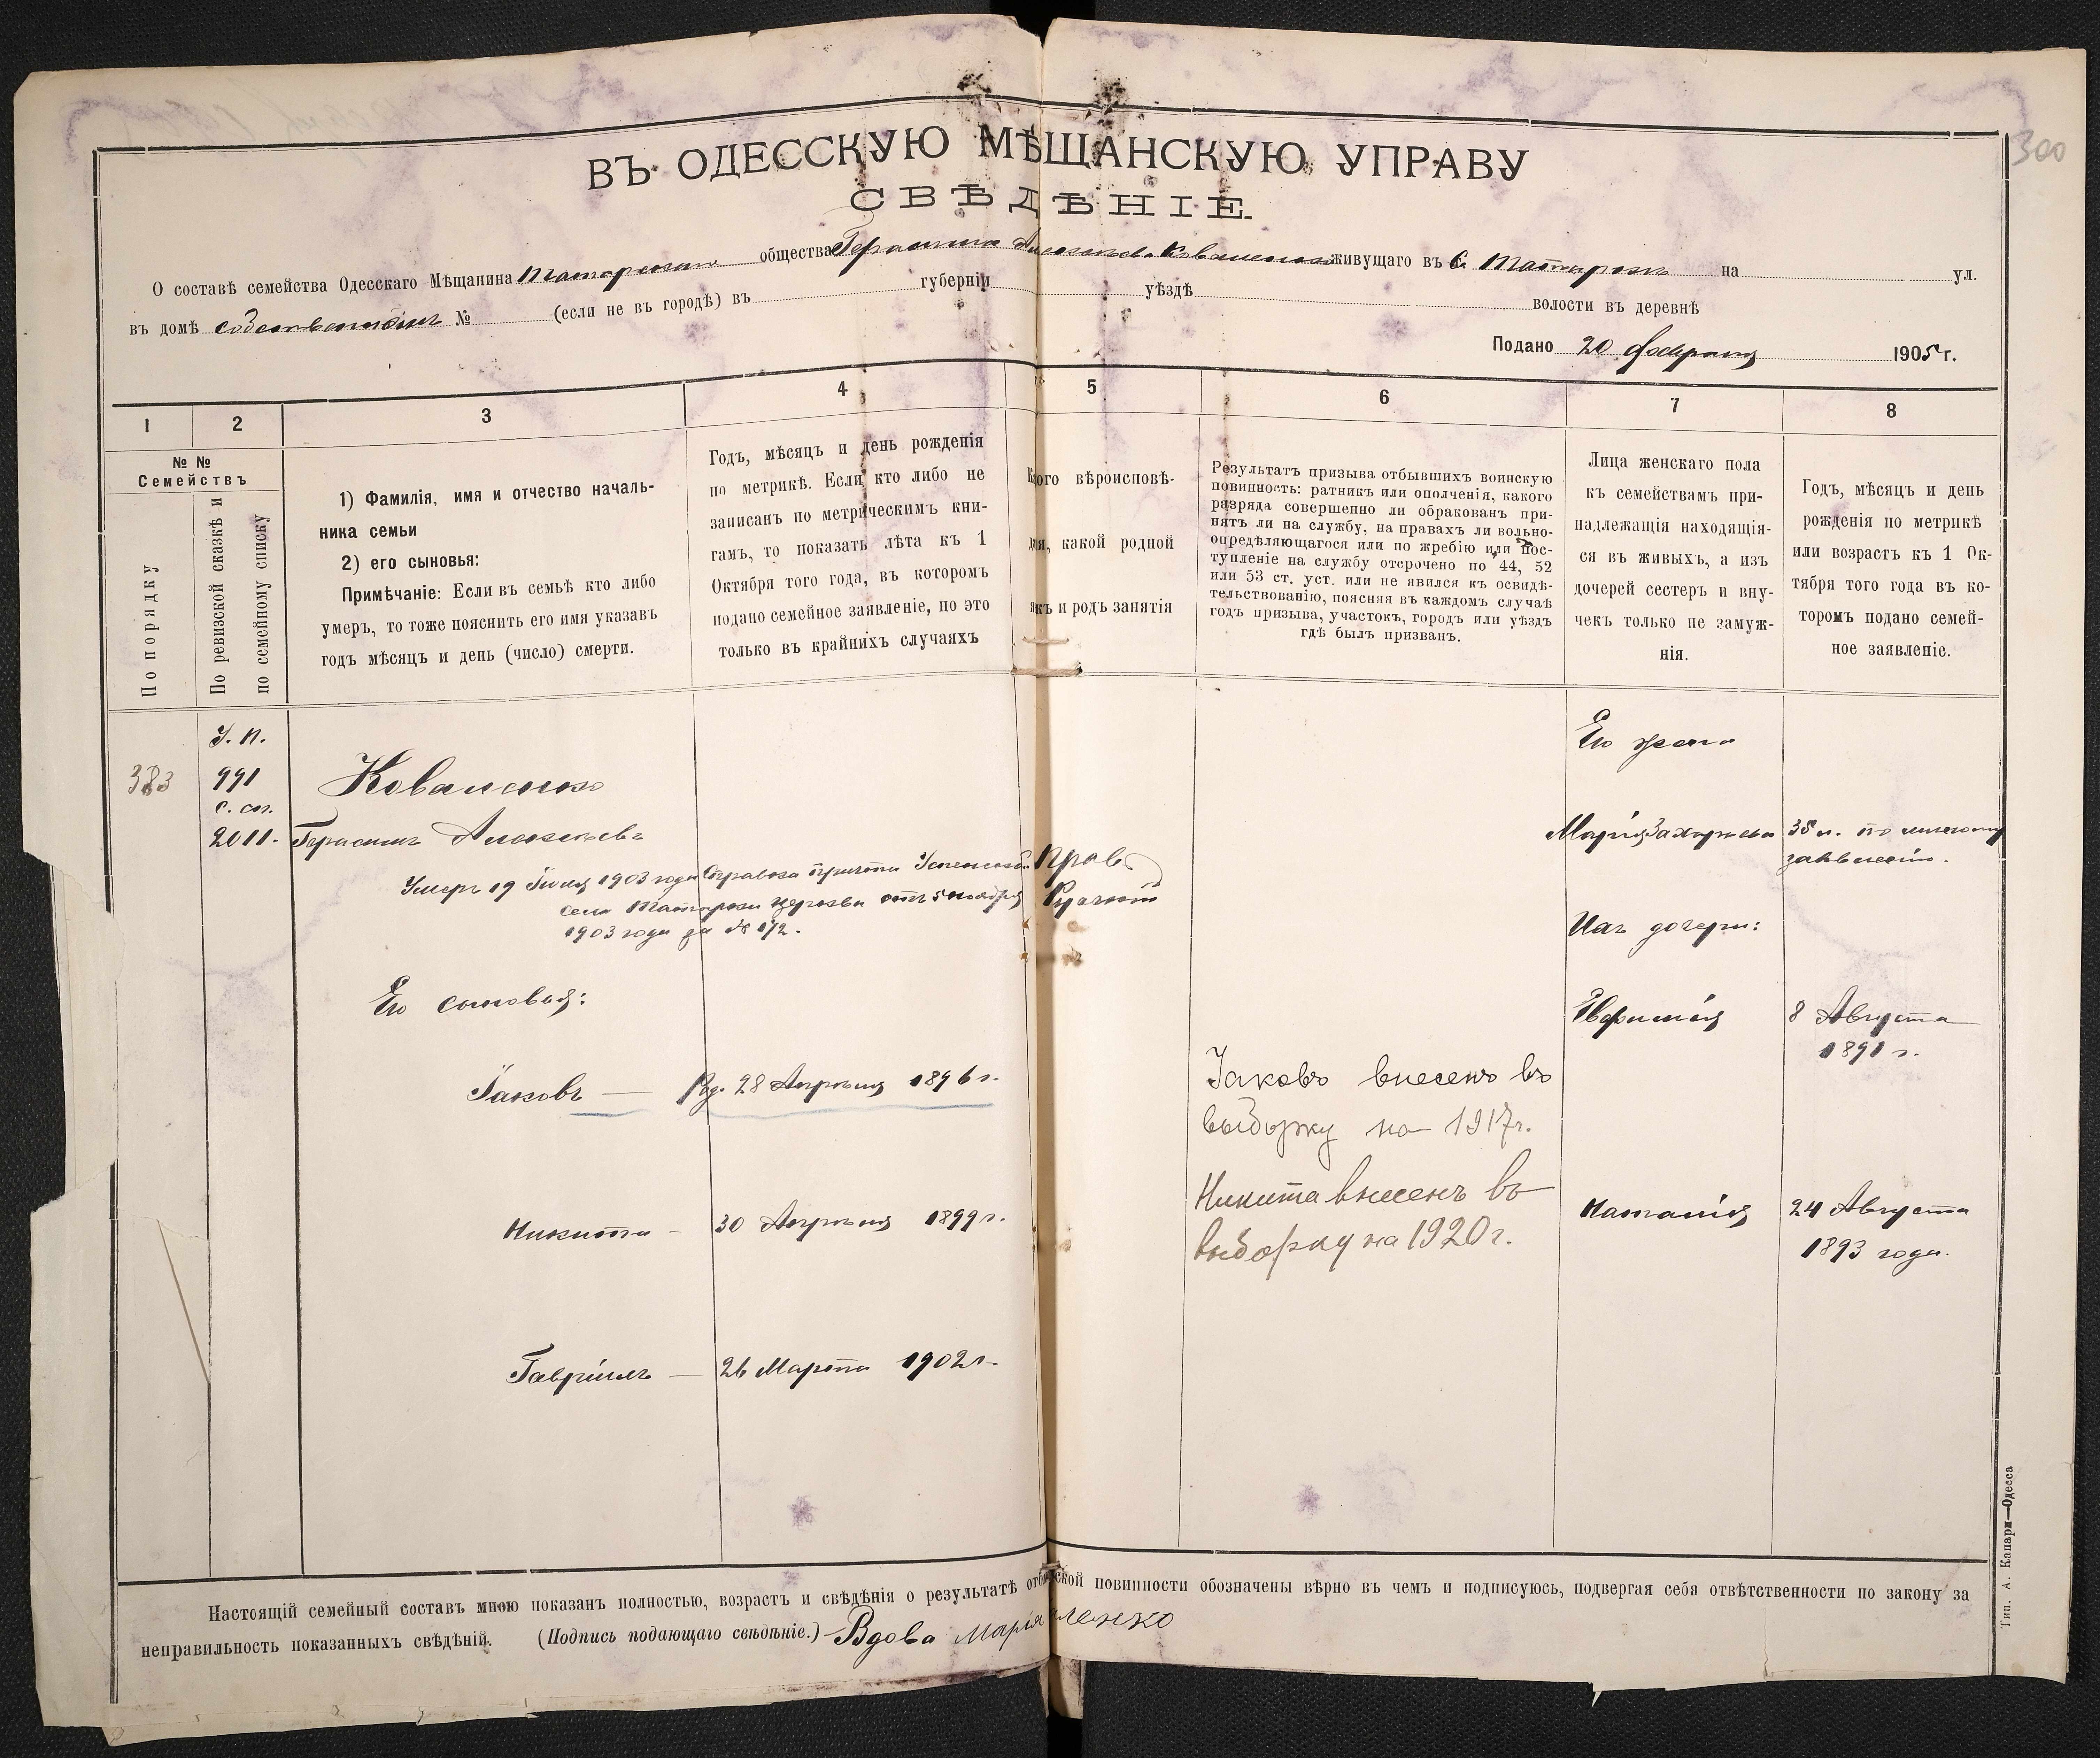 300
ВЪ ОДЕССКУЮ МѢЩАНСКУЮ УПРАВУ
СВѢДѢНІЕ.
О составѣ семейства Одесскаго Мѣщанина Татарскаго общества Герасима Алексѣев. Коваленка живущаго въ с. Татаркѣ на ул.
въ домѣ собственномъ № (если не въ городѣ) въ губерніи уѣздѣ волости въ деревнѣ
Подано 20 февраля 1905 г.
1 2 3 4 5 6 7 8
№ №
Семействъ
По порядку
По ревизской сказкѣ и
по семейному списку
1) Фамилія, имя и отчество началь-
ника семьи
2) его сыновья:
Примѣчаніе: Если въ семьѣ кто либо
умеръ, то тоже пояснить его имя указавъ
годъ мѣсяцъ и день (число) смерти.
Годъ, мѣсяцъ и день рожденія
по метрикѣ. Если кто либо не
записанъ по метрическимъ кни-
гамъ, то показать лѣта къ 1
Октября того года, въ которомъ
подано семейное заявленіе, но это
только въ крайнихъ случаяхъ
вѣроисповѣ-
какой родной
и родъ занятія
Результатъ призыва отбывшихъ воинскую
повинность: ратникъ или ополченія, какого
разряда совершенно ли обракованъ при-
нятъ ли на службу, на правахъ ли вольно-
опредѣляющагося или по жребію или пос-
тупленіе на службу отсрочено по 44, 52
или 53 ст. уст. или не явился къ освидѣ-
тельствованію, поясняя въ каждомъ случаѣ
годъ призыва, участокъ, городъ или уѣздъ
гдѣ былъ призванъ.
Лица женскаго пола
къ семействамъ при-
надлежащія находящія-
ся въ живыхъ, а изъ
дочерей сестеръ и вну-
чекъ только не замуж-
нія.
Годъ, мѣсяцъ и день
рожденія по метрикѣ
или возрастъ къ 1 Ок-
тября того года въ ко-
торомъ подано семей-
ное заявленіе.
383
991
с. сп.
2011.
Коваленко
Герасимъ Алексѣевъ
Умеръ 19 Іюля 1903 года Справка причта Успенской
села Татарки церкви отъ 5 ноября
1903 года за № 172.
Прав.
Русскій
Его сыновья:
Іаковъ — Рд. 28 Апрѣля 1896 г.
Никита — 30 Апрѣля 1899 г.
Гавріилъ — 26 Марта 1902 г.
Іаковъ внесенъ въ
выборку на 1917 г.
Никита внесенъ въ
выборку на 1920 г.
Его жена
Марія Захарьева 38 л. по личному
заявленію.
Ихъ дочери:
Евфимія 8 Августа
1891 г.
Наталія 24 Августа
1893 года.
Настоящій семейный составъ мною показанъ полностью, возрастъ и свѣдѣнія о результатѣ повинности обозначены вѣрно въ чемъ и подписуюсь, подвергая себя отвѣтственности по закону за
неправильность показанныхъ свѣдѣній. (Подпись подающаго свѣдѣніе.) Вдова Марія ленко
Тип. А. Капари—Одесса